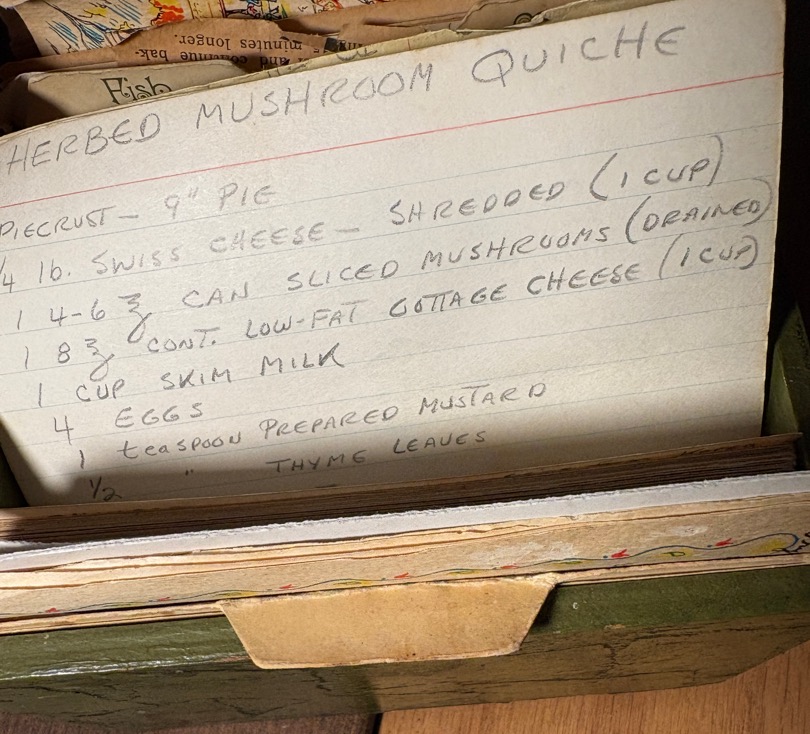 minutes longer.
and continue bak-
Fish
HERBED MUSHROOM QUICHE
PIECRUST - 9" PIE
1/4 lb. SWISS CHEESE - SHREDDED (1 CUP)
1 4-6 ℥ CAN SLICED MUSHROOMS (DRAINED)
1 8 ℥ CONT. LOW-FAT COTTAGE CHEESE (1 CUP)
1 CUP SKIM MILK
4 EGGS
1 teaspoon PREPARED MUSTARD
1/2 " THYME LEAVES